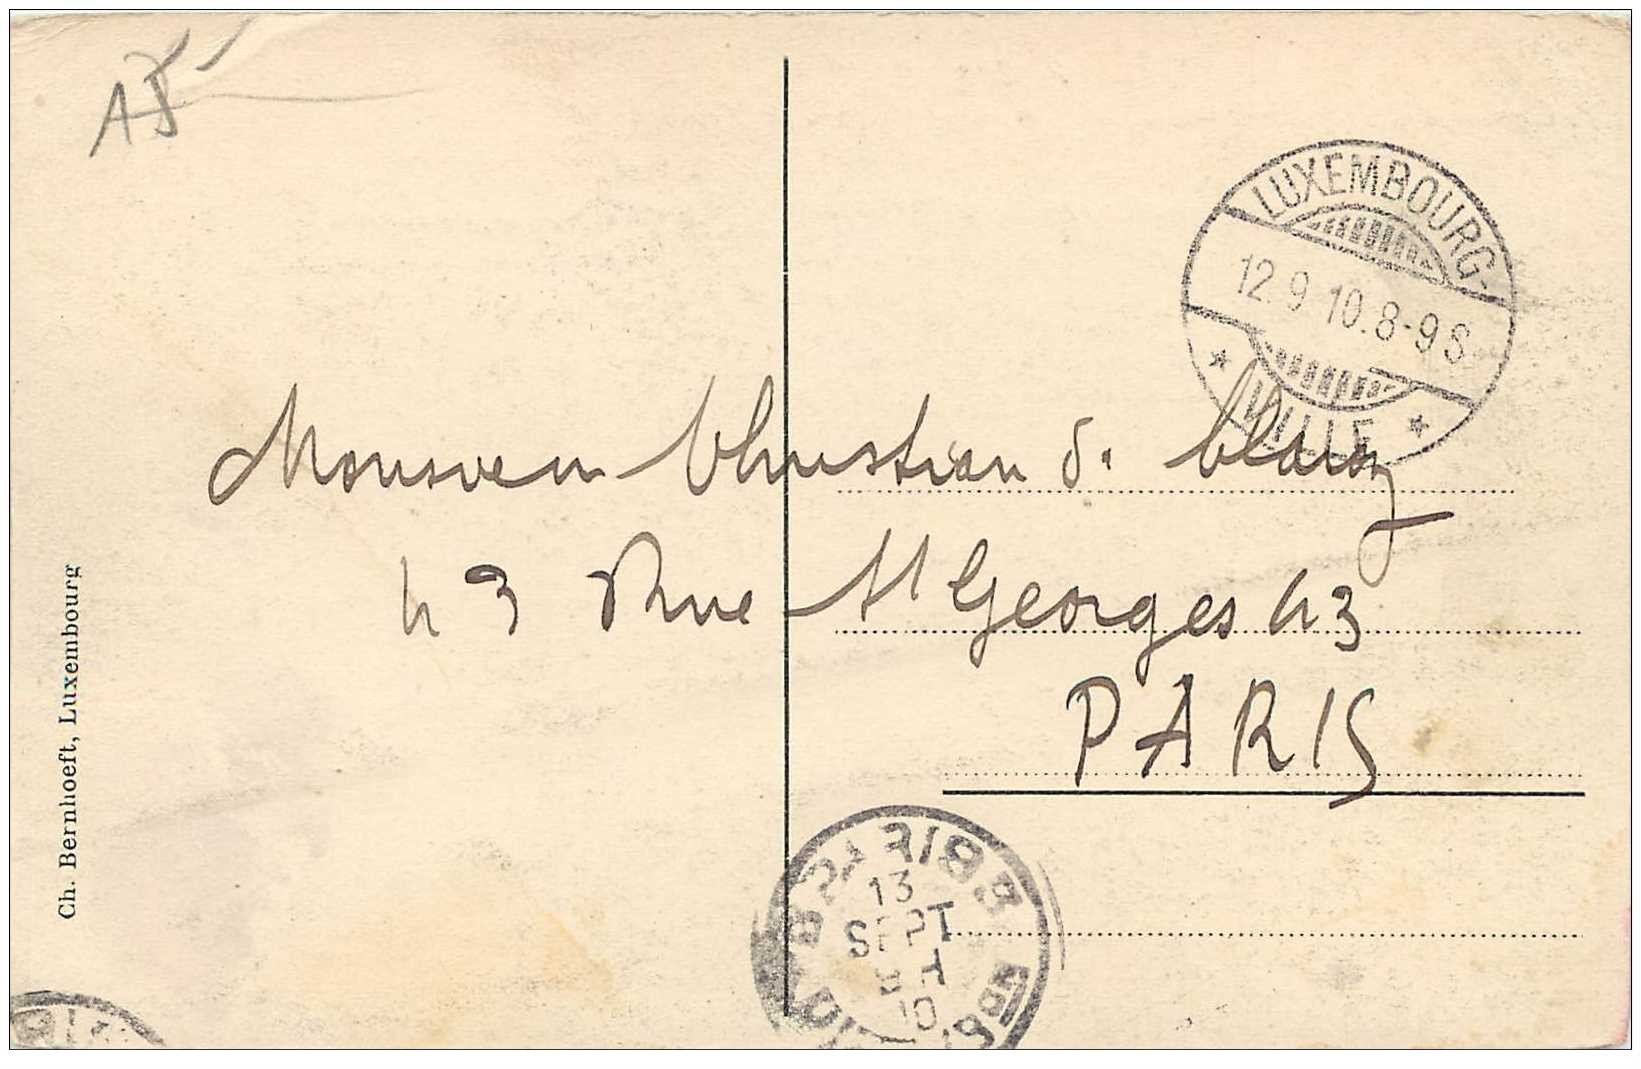 AJ
LUXEMBOURG-
12.9 10.8-9S
* VILLE *
Monsieur Christian de
43 Rue St Georges 43
PARIS
Ch. Bernhoeft, Luxembourg
13
SEPT
10